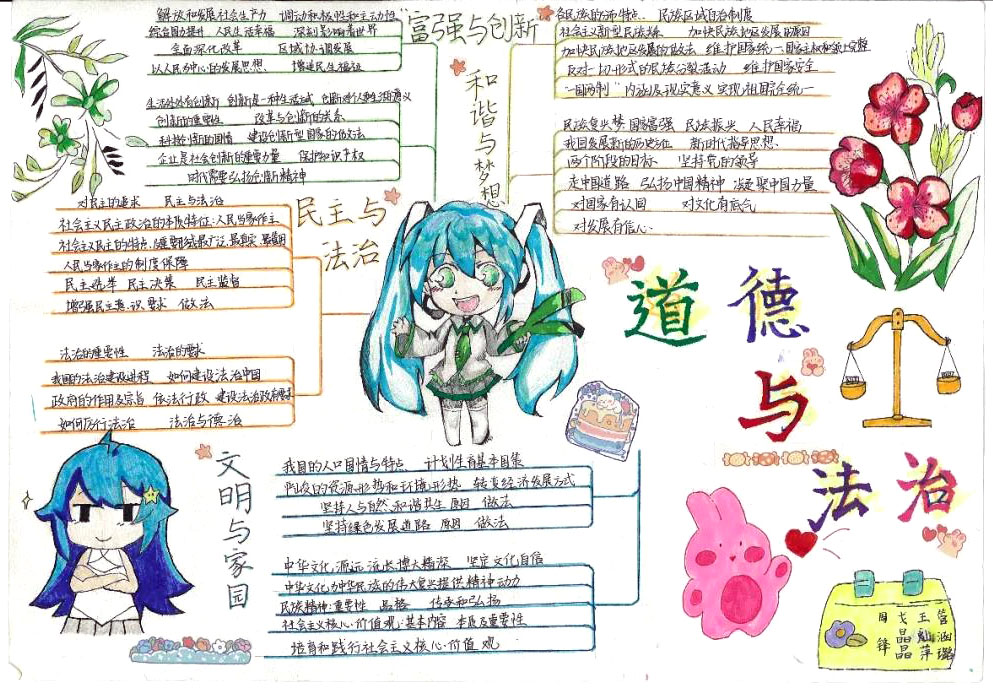 富强与创新
解放和发展社会生产力 调动积极性和主动性
综合国力提升 人民生活幸福 深刻影响着世界
全面深化改革 区域协调发展
以人民为中心的发展思想 增进民生福祉
生活处处有创新 创新是一种生活方式 创新对个人和生活的意义
创新的重要性 改革与创新的关系
科技创新的国情 建设创新型国家的做法
企业是社会创新的重要力量 保护知识产权
时代需要弘扬创新精神
和谐与梦想
各民族的分布特点 民族区域自治制度
社会主义新型民族关系 加快民族地区发展的原因
加快民族地区发展的做法 维护国家统一、国家主权和领土完整
反对一切形式的民族分裂活动 维护国家安全
"一国两制"内涵及现实意义 实现祖国完全统一
民族复兴梦:国家富强 民族振兴 人民幸福
我国发展新的历史方位 新时代指导思想
两个阶段的目标 坚持党的领导
走中国道路 弘扬中国精神 凝聚中国力量
对国家有认同 对文化有底气
对发展有信心
民主与法治
对民主的追求 民主与法治
社会主义民主政治的本质特征:人民当家作主
社会主义民主的特点,最广泛、最真实、最管用
人民当家作主的制度保障
民主选举 民主决策 民主监督
增强民主意识 要求 做法
法治的重要性 法治的要求
我国的法治建设进程 如何建设法治中国
政府的作用及宗旨 依法行政 建设法治政府要求
如何厉行法治 法治与德治
文明与家园
我国的人口国情与特点 计划生育基本国策
严峻的资源形势和环境形势 转变经济发展方式
坚持人与自然和谐共生 原因 做法
坚持绿色发展道路 原因 做法
中华文化,源远流长、博大精深 坚定文化自信
中华文化为中华民族的伟大复兴提供精神动力
民族精神:重要性 品格 传承和弘扬
社会主义核心价值观:基本内容 本质及重要性
培育和践行社会主义核心价值观
道德
与
法治
管涵璐
王灿萍
戈晶晶
周锋